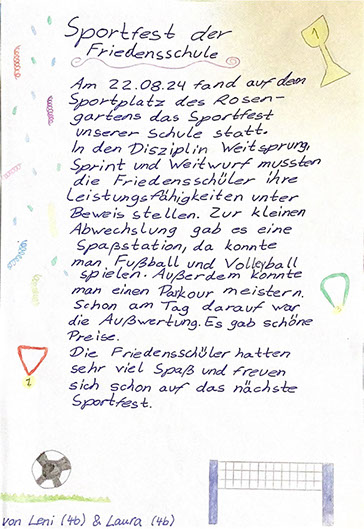 Sportfest der
Friedensschule
1
Am 22.08.24 fand auf dem
Sportplatz des Rosen-
gartens das Sportfest
unserer Schule statt.
In den Disziplin Weitsprung,
Sprint und Weitwurf mussten
die Friedensschüler ihre
Leistungsfähigkeiten unter
Beweis stellen. Zur kleinen
Abwechslung gab es eine
Spaßstation, da konnte
man Fußball und Volleyball
spielen. Außerdem konnte
man einen Parkour meistern.
Schon am Tag darauf war
die Außwertung. Es gab schöne
Preise.
Die Friedensschüler hatten
sehr viel Spaß und freuen
sich schon auf das nächste
Sportfest.
1
von Leni (4b) & Laura (4b)